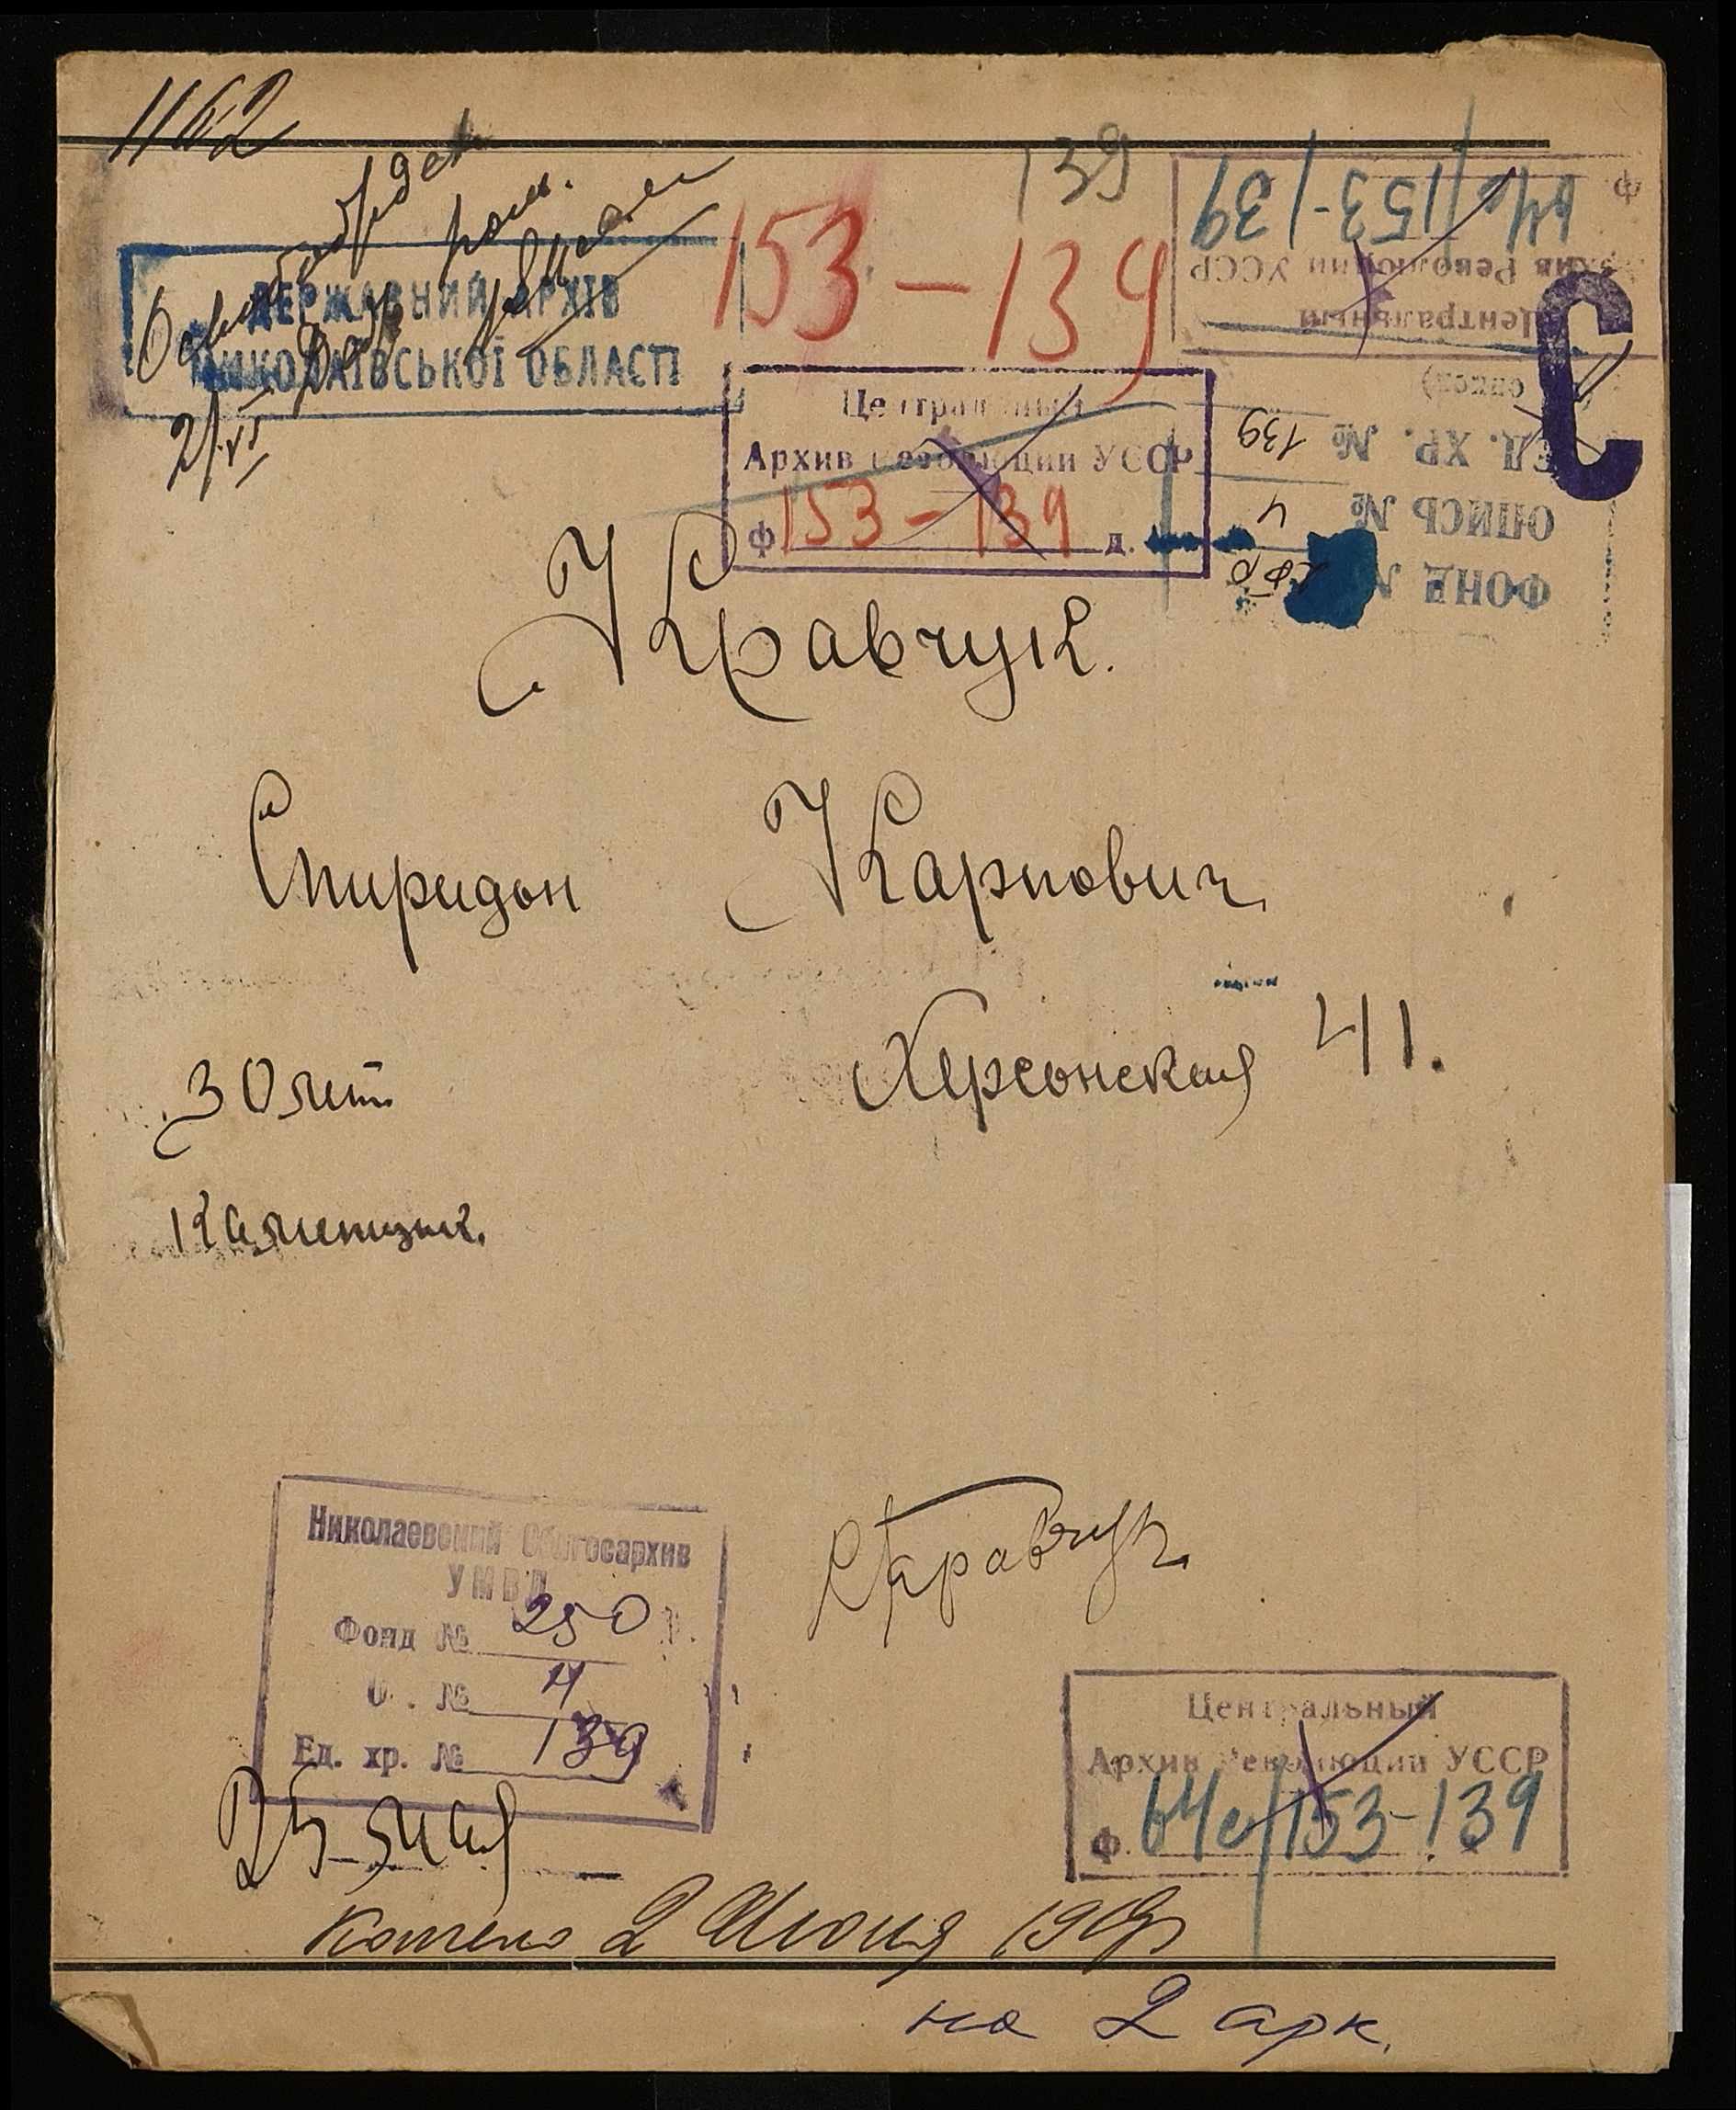 1162
139
153-139
64с/153-139
ф
Архив Революции УССР
Центральный
ДЕРЖАВНИЙ АРХІВ
МИКОЛАЇВСЬКОЇ ОБЛАСТІ
21/VI
С
Центральный
Архив Революции УССР
ф 153-139 д.
ЕД. ХР. № 139
ОПИСЬ № 4
ФОНД №
Кравчук.
Спиридон Карпович
Херсонская 41.
30 лет
Кравчук
Николаевский Облгосархив
УМВД
Фонд № 250
О . № 4
Ед. хр. № 139
Центральный
Архив Революции УССР
Ф. 64с/153-139
25 мая
2 Июня
на 2 арк.